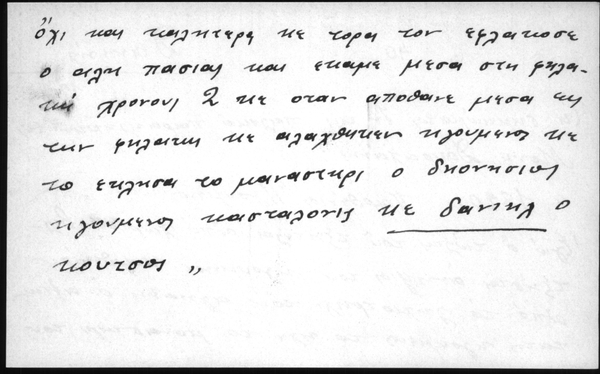 ὄχι και καλητερη κε τορα τον εφλακοσε
ο αλη πασιας και εκαμε μεσα στη φηλα-
κη χρονους 2 κε οταν αποθανε μεσα εις
την φηλακη κε αλαχθηκεν ηγουμενος κε
το εκλησα το μαναστηρι ο δηονησιος
ηγουμενος κασταλονης κε δανιηλ ο
κουτσος „